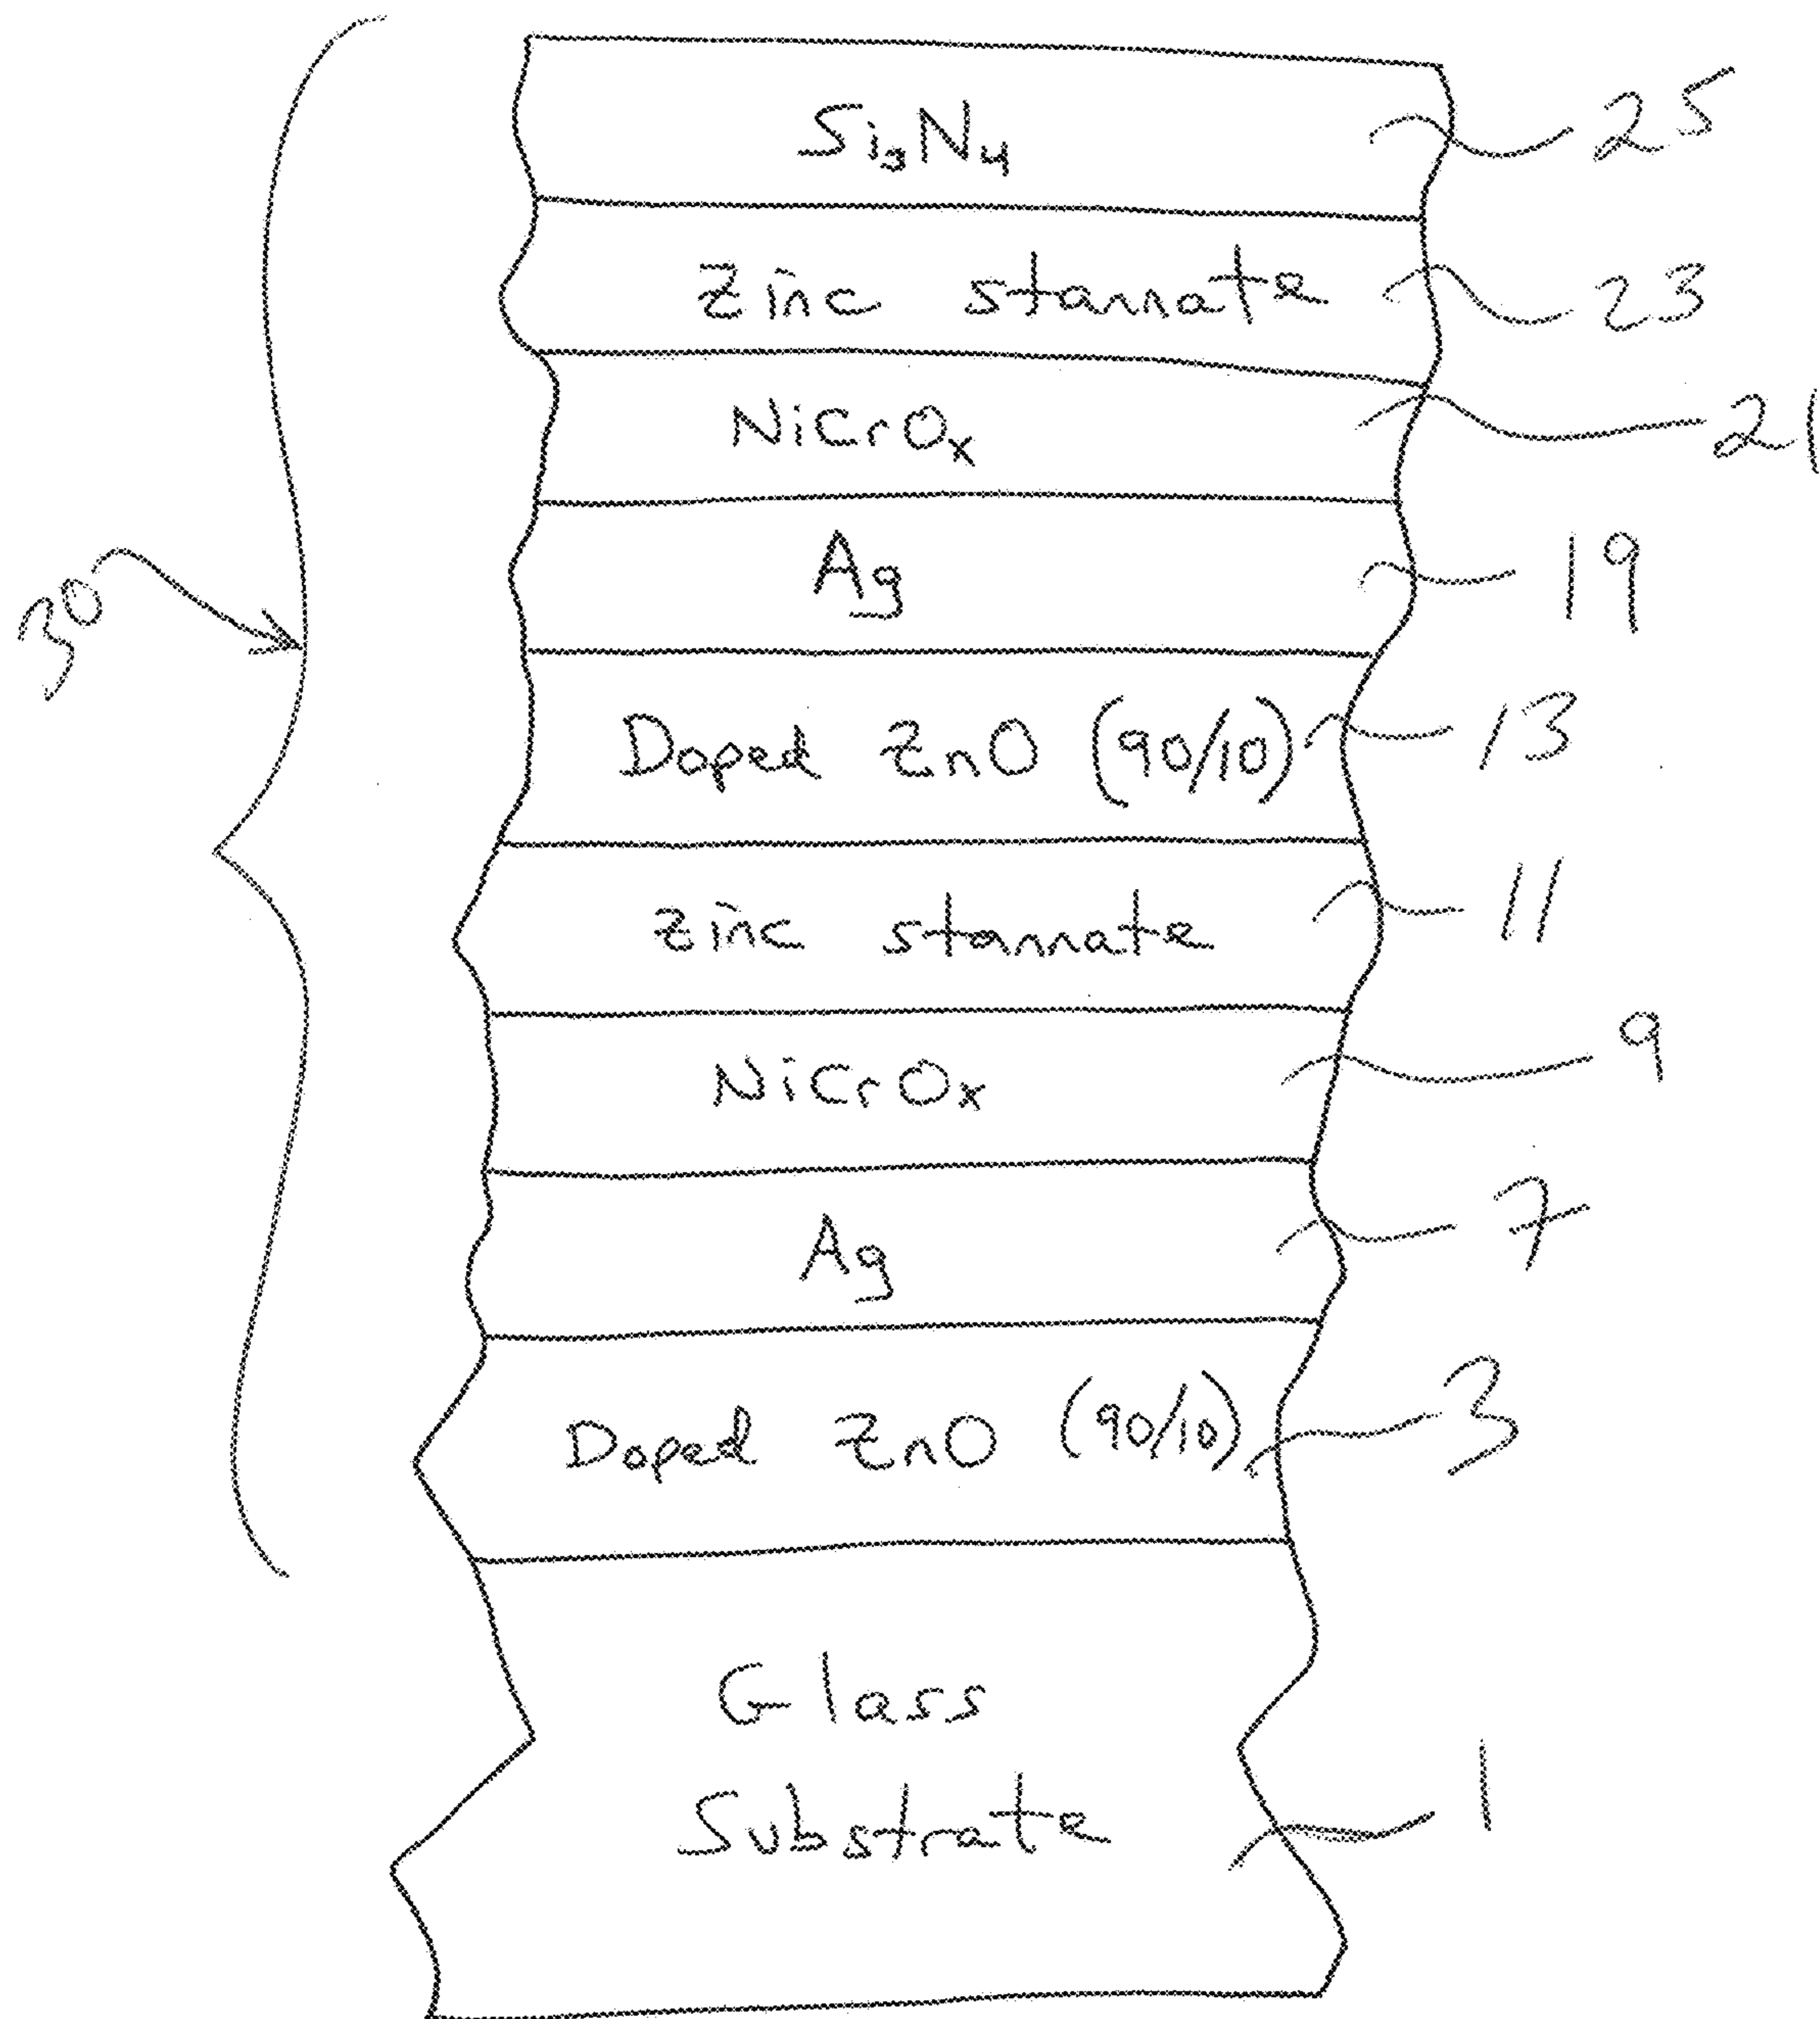 Si₃N₄ 25
Zinc stannate 23
NiCrOₓ 21
Ag 19
30
Doped ZnO (90/10) 13
Zinc stannate 11
NiCrOₓ 9
Ag 7
Doped ZnO (90/10) 3
Glass
Substrate 1